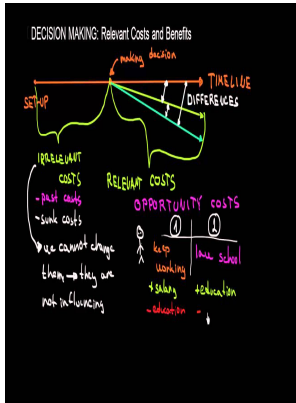 DECISION MAKING: Relevant Costs and Benefits
making decision
TIMELINE
SET-UP
DIFFERENCES
IRRELEVANT
COSTS
- past costs
- sunk costs
we cannot change
them → they are
not influencing
RELEVANT COSTS
OPPORTUNITY COSTS
1 2
keep
working
law school
+ salary + education
- education -